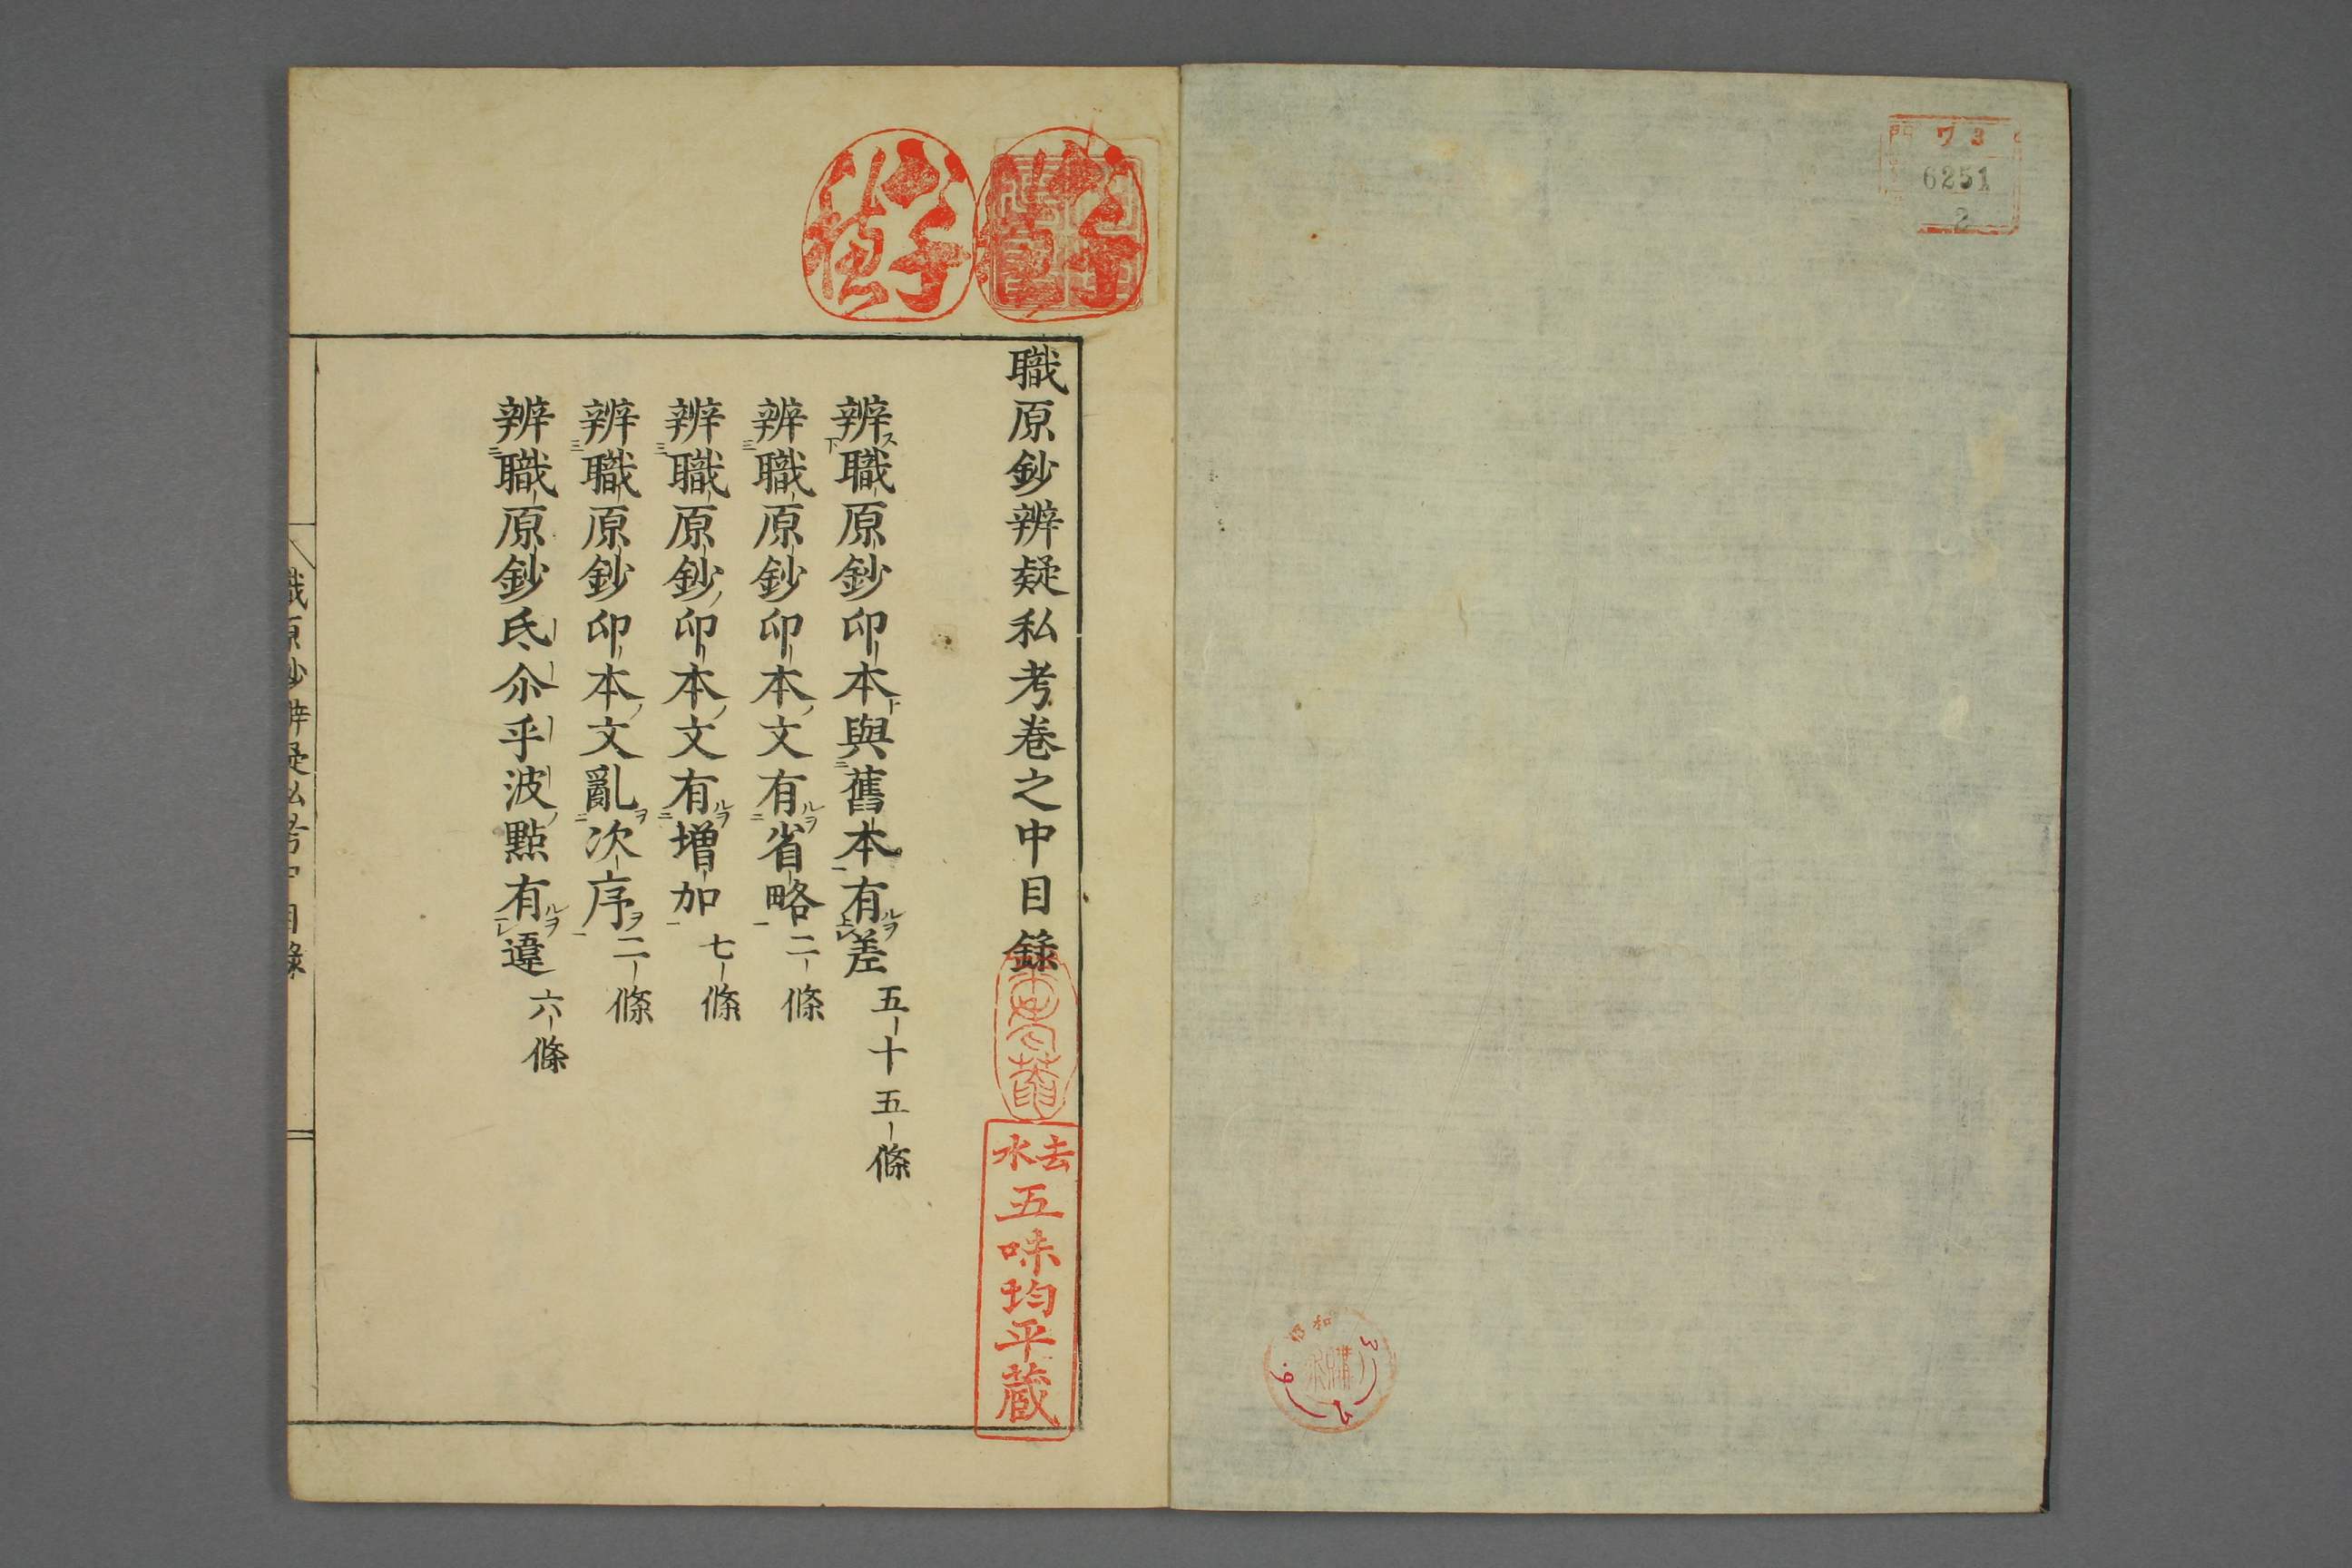 ワ3
6251
2
職原鈔辨疑私考卷之中目錄
辨職原鈔印本與舊本有差 五十五條
辨職原鈔印本文有省略 二條
辨職原鈔印本文有增加 七條
辨職原鈔印本文亂次序 二條
辨職原鈔氐尒乎波點有違 六條
去水
五味均平蔵
昭和